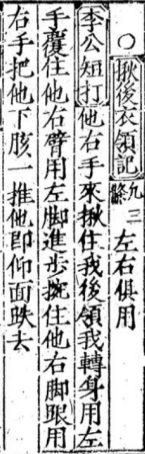 ○揪後衣領記 九 三 左右俱用
李公短打 他右手來揪住我後領我轉身用左
手覆住他右臂用左脚進步挽住他右脚跟用
右手把他下胲一推他卽仰面跌去